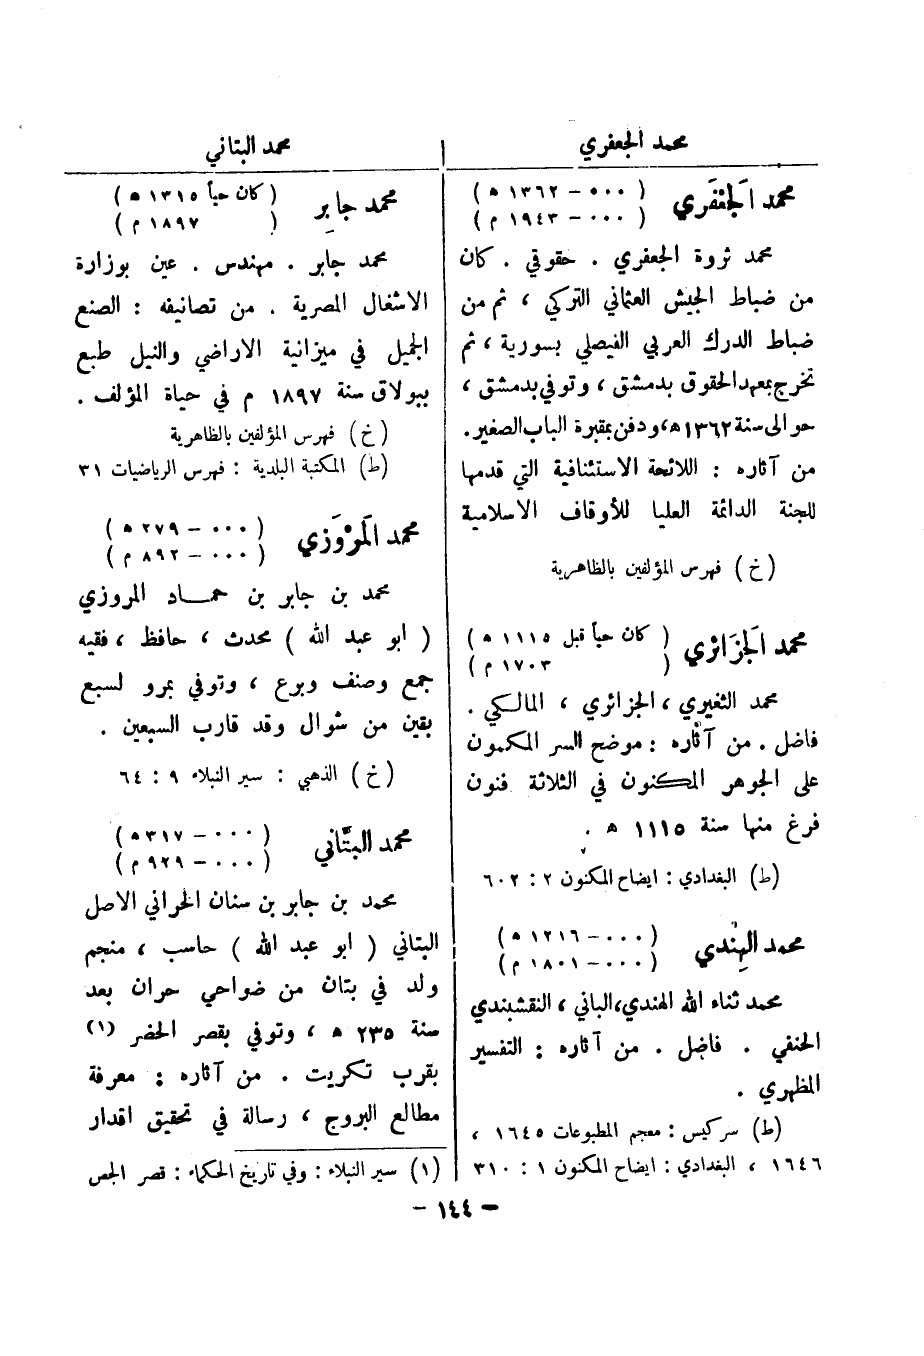 محمد الجعفري
محمد الَجعْفَري
( ٠٠٠ – ١٣٦٢ ه )
( ٠٠٠ – ١٩٤٣ م )
محمد ثروة الجعفري . حقوقي . كان
من ضباط الجيش العثماني التركي ، ثم من
ضباط الدرك العربي الفيصلي بسورية ، ثم
تخرج بمعهد الحقوق بدمشق ، وتوفي بدمشق ،
حوالى سنة ١٣٦٢ ه‍ ، ودفن بمقبرة الباب الصغير .
من آثاره : اللائحة الاستئنافية التي قدمها
للجنة الدائمة العليا للأوقاف الاسلامية
( خ ) فهرس المؤلفين بالظاهرية
محمد الَجزَائري
( كان حياً قبل ١١١٥ ه )
( ١٧٠٣ م )
محمد الثغيري ، الجزائري ، المالكي .
فاضل . من آثاره : موضح السر المكمون
على الجوهر المكنون في الثلاثة فنون
فرغ منها سنة ١١١٥ ه .
( ط ) البغدادي : ايضاح المكنون ٢ : ٦٠٢
محمد الهِنْدي
( ٠٠٠ – ١٢١٦ ه )
( ٠٠٠ – ١٨٠١ م )
محمد ثناء الله الهندي ، الباني ، النقشبندي
الحنفي . فاضل . من آثاره : التفسير
المظهري .
( ط ) سركيس : معجم المطبوعات ١٦٤٥ ،
١٦٤٦ ، البغدادي : ايضاح المكنون ١ : ٣١٠
محمد البتاني
محمد جابر
( كان حياً ١٣١٥ ه )
( ١٨٩٧ م )
محمد جابر . مهندس . عين بوزارة
الاشغال المصرية . من تصانيفه : الصنع
الجميل في ميزانية الاراضي والنيل طبع
ببولاق سنة ١٨٩٧ م في حياة المؤلف .
( خ ) فهرس المؤلفين بالظاهرية
( ط ) المكتبة البلدية : فهرس الرياضيات ٣١
محمد الَمرْوَزي
( ٠٠٠ – ٢٧٩ ه )
( ٠٠٠ – ٨٩٢ م )
محمد بن جابر بن حماد المروزي
( ابو عبد الله ) محدث ، حافظ ، فقيه
جمع وصنف وبرع ، وتوفي بمرو لسبع
بقين من شوال وقد قارب السبعين .
( خ ) الذهبي : سير النبلاء ٩ : ٦٤
محمد البتَّاني
( ٠٠٠ – ٣١٧ ه )
( ٠٠٠ – ٩٢٩ م )
محمد بن جابر بن سنان الحراني الاصل
البتاني ( ابو عبد الله ) حاسب ، منجم
ولد في بتان من ضواحي حران بعد
سنة ٢٣٥ ه ، وتوفي بقصر الحضر (١)
بقرب تكريت . من آثاره : معرفة
مطالع البروج ، رسالة في تحقيق اقدار
(١) سير النبلاء : وفي تاريخ الحكماء : قصر الجص
– ١٤٤ –